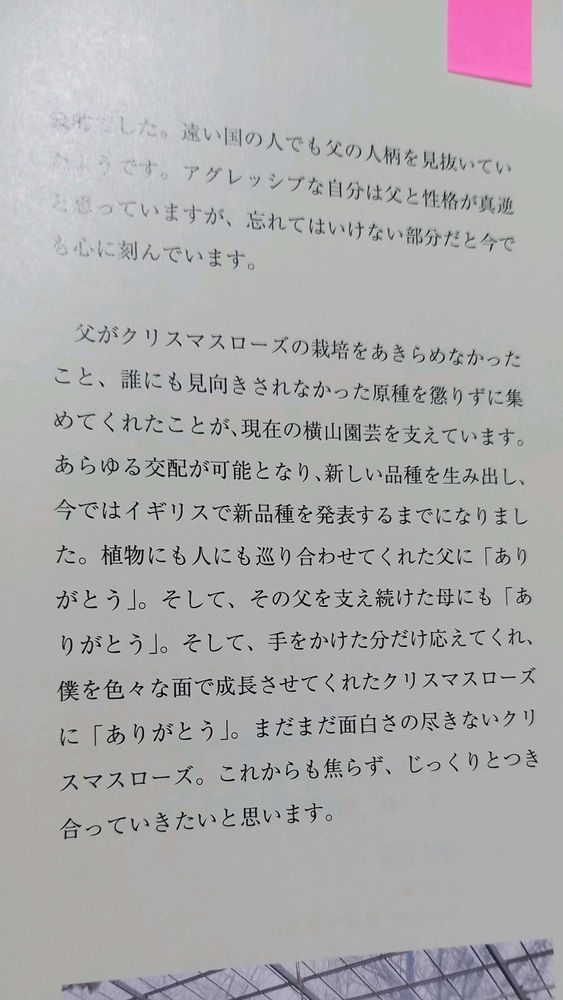 でした。遠い国の人でも父の人柄を見抜いてい
たようです。アグレッシブな自分は父と性格が真逆
と思っていますが、忘れてはいけない部分だと今で
も心に刻んでいます。
父がクリスマスローズの栽培をあきらめなかった
こと、誰にも見向きされなかった原種を懲りずに集
めてくれたことが、現在の横山園芸を支えています。
あらゆる交配が可能となり、新しい品種を生み出し、
今ではイギリスで新品種を発表するまでになりまし
た。植物にも人にも巡り合わせてくれた父に「あり
がとう」。そして、その父を支え続けた母にも「あ
りがとう」。そして、手をかけた分だけ応えてくれ、
僕を色々な面で成長させてくれたクリスマスローズ
に「ありがとう」。まだまだ面白さの尽きないクリ
スマスローズ。これからも焦らず、じっくりとつき
合っていきたいと思います。